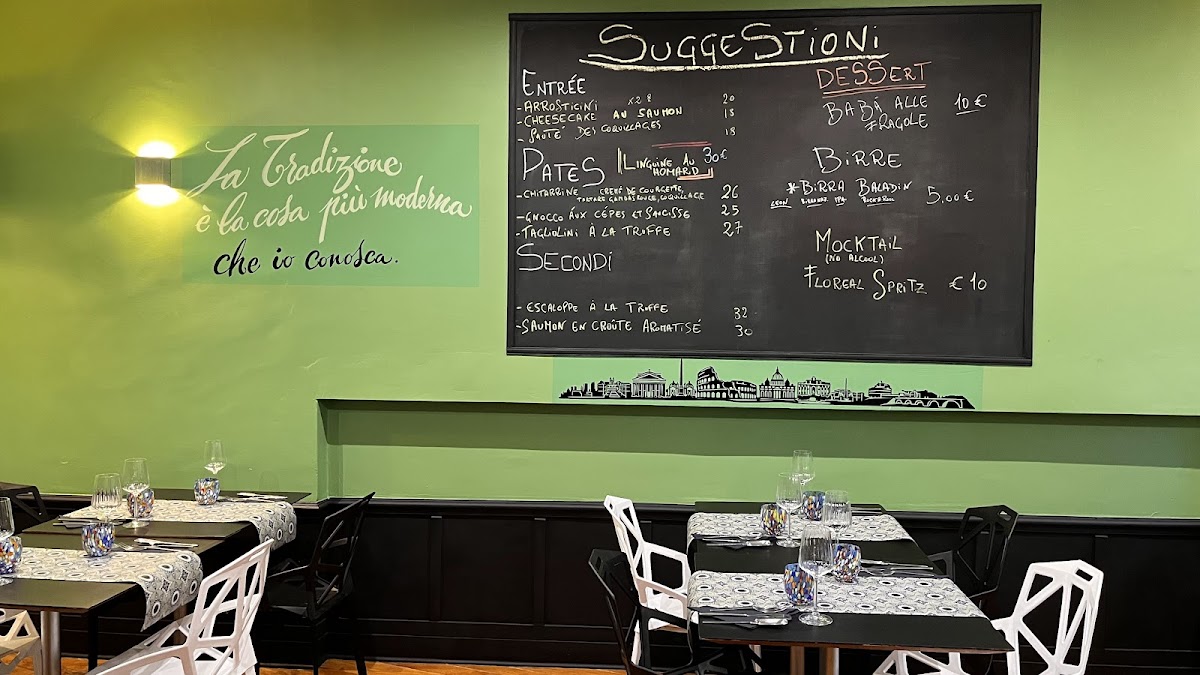 La Tradizione
è la cosa più moderna
che io conosca.
SUGGESTIONI
ENTRÉE
- ARROSTICINI x28 20
- CHEESECAKE AU SAUMON 18
- SAUTÉ DES COQUILLAGES 18
PATES
LINGUINE AU HOMARD 30€
- CHITARRINE CREME DE COURGETTE, 26
TARTARE GAMBAS ROUGE, COQUILLAGE
- GNOCCO AUX CÈPES ET SAUCISSE 25
- TAGLIOLINI À LA TRUFFE 27
SECONDI
- ESCALOPPE À LA TRUFFE 32
- SAUMON EN CROÛTE AROMATISÉ 30
DESSERT
BABÁ ALLE 10€
FRAGOLE
BIRRE
* BIRRA BALADIN 5,00€
ROCK & ROLL
MOCKTAIL
(NO ALCOOL)
FLOREAL SPRITZ €10